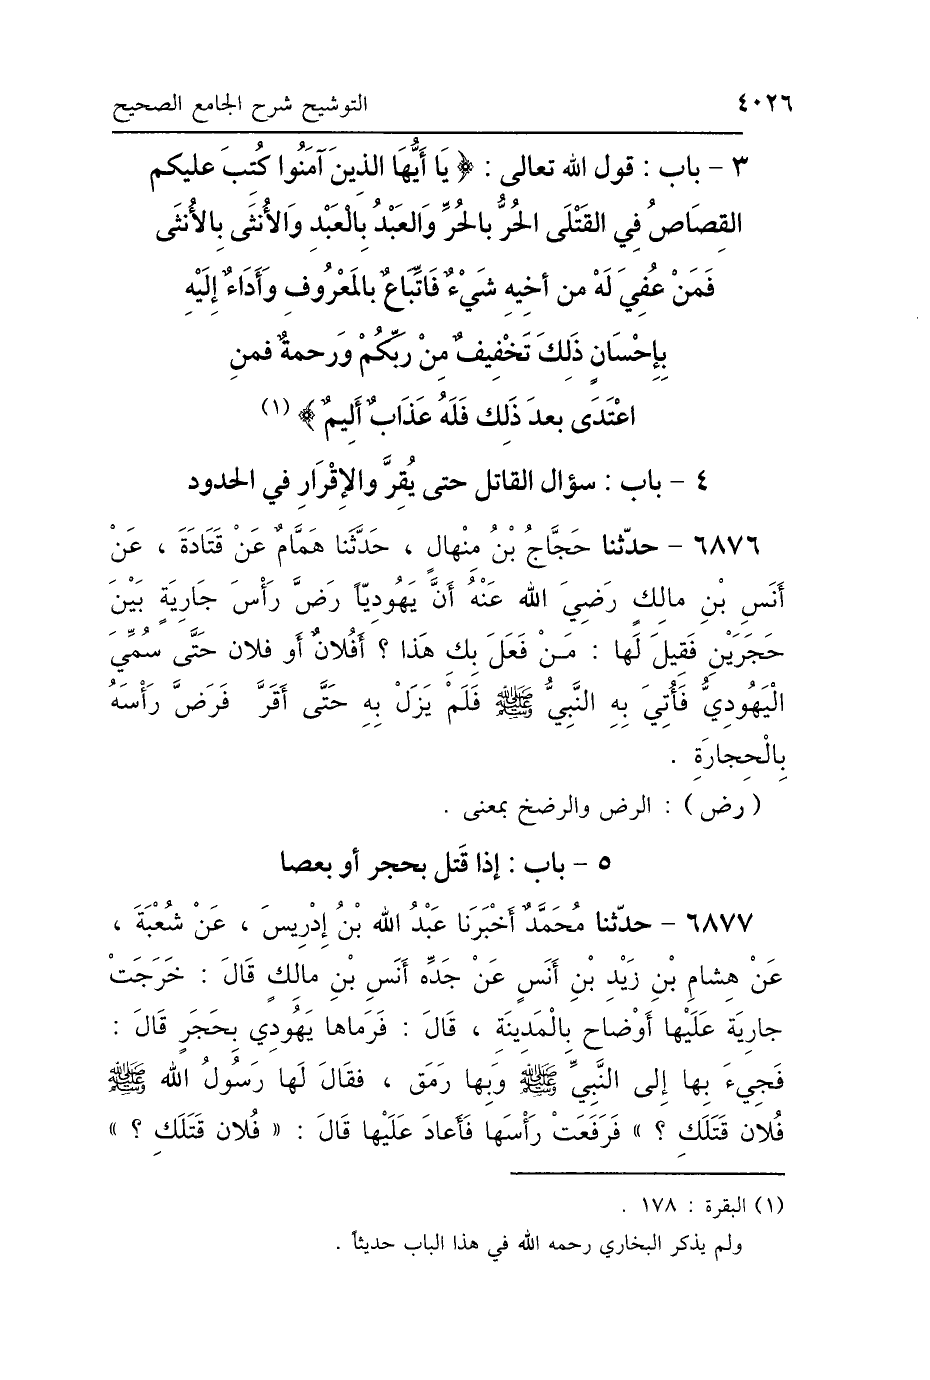 ٤٠٢٦ التوشيح شرح الجامع الصحيح
٣ - باب : قول الله تعالى : ﴿ يَا أَيُّهَا الذينَ آمَنُوا كُتبَ عليكم
القِصَاصُ فِي القَتْلَى الحُرُّ بالحُرِّ وَالعَبْدُ بِالْعَبْدِ وَالأُنثَى بِالأُنثَى
فَمَنْ عُفِيَ لَهْ من أخيهِ شَيْءٌ فَاتِّبَاعٌ بالمَعْرُوفِ وأَدَاءٌ إِلَيْهِ
بِإِحْسَانٍ ذَلِكَ تَخْفِيفٌ مِنْ رَبِّكُمْ وَرَحمةٌ فمنِ
اعْتَدَى بعدَ ذَلِك فَلَهُ عَذَابٌ أَلِيمٌ ﴾ (١)
٤ - باب : سؤال القاتل حتى يُقِرَّ والإِقْرَارِ في الحدود
٦٨٧٦ - حدّثنا حَجَّاجُ بْنُ مِنْهالٍ ، حَدَّثَنا هَمَّامٌ عَنْ قَتَادَةَ ، عَنْ
أَنَسِ بْنِ مالِكٍ رَضِيَ الله عَنْهُ أَنَّ يَهُودِيّاً رَضَّ رَأْسَ جَارِيَةٍ بَيْنَ
حَجَرَيْنِ فَقِيلَ لَها : مَـنْ فَعَلَ بِكِ هَذا ؟ أَفُلانٌ أو فلان حَتَّى سُمِّيَ
الْيَهُودِيُّ فَأُتِيَ بِهِ النَّبِيُّ ﷺ فَلَمْ يَزَلْ بِهِ حَتَّى أَقَرَّ فَرَضَّ رَأْسَهُ
بِالْحِجارَةِ .
( رض ) : الرض والرضخ بمعنى .
٥ - باب : إذا قَتل بحجر أو بعصا
٦٨٧٧ - حدّثنا مُحَمَّدٌ أَخْبَرَنَا عَبْدُ الله بْنُ إِدْرِيسَ ، عَنْ شُعْبَةَ ،
عَنْ هِشامِ بْنِ زَيْدِ بْنِ أَنَسٍ عَنْ جَدِّهِ أَنَسِ بْنِ مالِكٍ قَالَ : خَرَجَتْ
جارِيَةٌ عَلَيْها أَوْضاحٌ بِالْمَدِينَةِ ، قَالَ : فَرَماها يَهُودِي بِحَجَرٍ قَالَ :
فَجِيءَ بِها إلى النَّبِيِّ ﷺ وَبِها رَمَق ، فقالَ لَها رَسُولُ الله ﷺ
فُلان قَتَلَكِ ؟ » فَرَفَعَتْ رَأْسَها فَأَعادَ عَلَيْها قَالَ : « فُلان قَتَلَكِ ؟ »
(١) البقرة : ١٧٨ .
ولم يذكر البخاري رحمه الله في هذا الباب حديثاً .